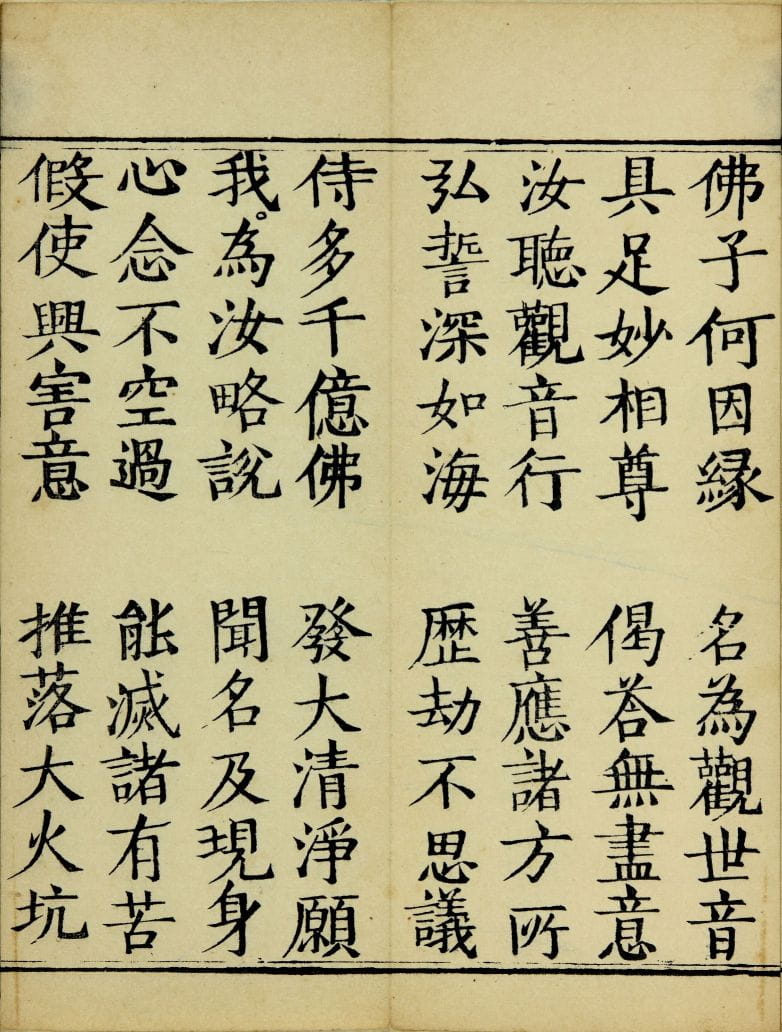 佛子何因縁 名為觀世音
具足妙相尊 偈荅無盡意
汝聽觀音行 善應諸方所
弘誓深如海 歴劫不思議
侍多千億佛 發大清淨願
我為汝略說 聞名及現身
心念不空過 能滅諸有苦
假使興害意 推落大火坑